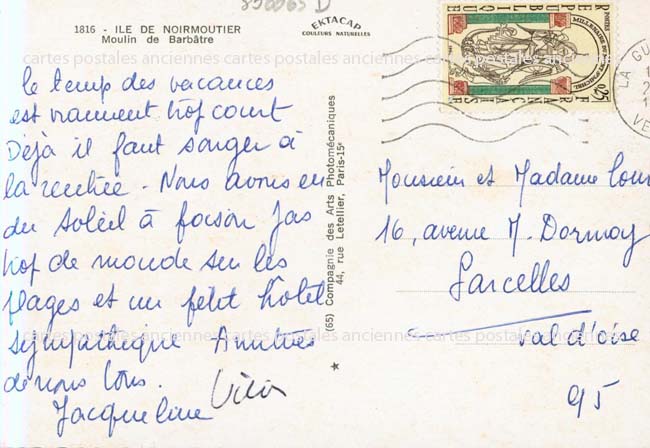 850065 D
1816 - ILE DE NOIRMOUTIER
Moulin de Barbâtre
EKTACAP
COULEURS NATURELLES
cartes postales anciennes cartes postales anciennes cartes postales anciennes
le temps des vacances
est vraiment trop court
Déjà il faut songer à
la rentrée. Nous avons eu
du soleil à foison pas
trop de monde sur les
plages et un petit hôtel
sympathique Amitiés
de nous tous.
Jacqueline
(65) Compagnie des Arts Photomécaniques
44, rue Letellier, Paris-15e
POSTES
0,25
LA GU
VE
Monsieur et Madame
16, avenue M. Dormoy
Sarcelles
Val d'oise
95
cartes postales anciennes cartes postales anciennes cartes postales anciennes